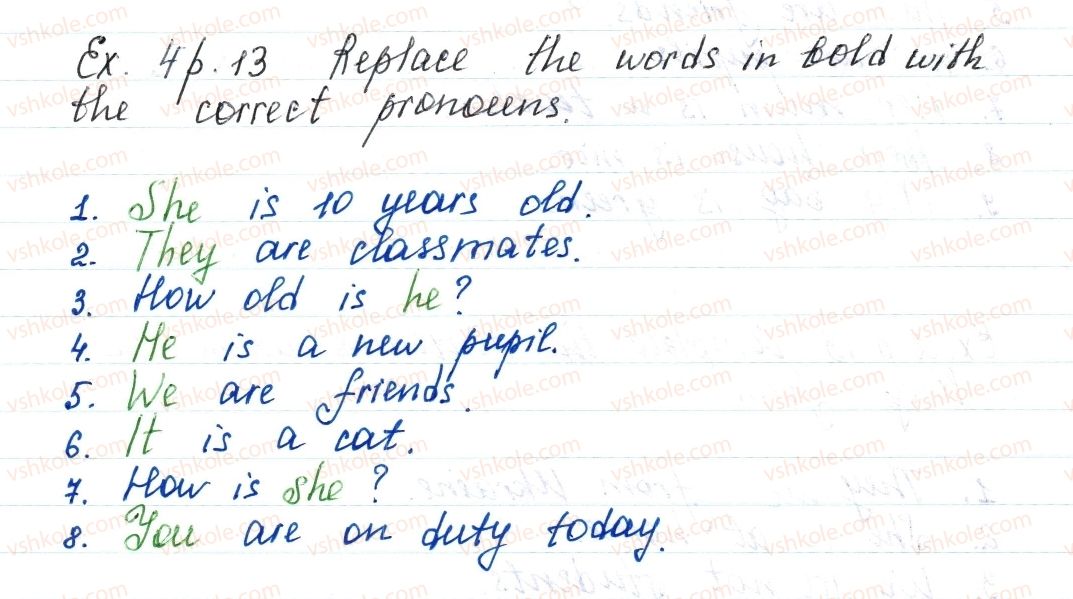 Ex. 4 p. 13 Replace the words in bold with
the correct pronouns.
1. She is 10 years old.
2. They are classmates.
3. How old is he?
4. He is a new pupil.
5. We are friends.
6. It is a cat.
7. How is she?
8. You are on duty today.